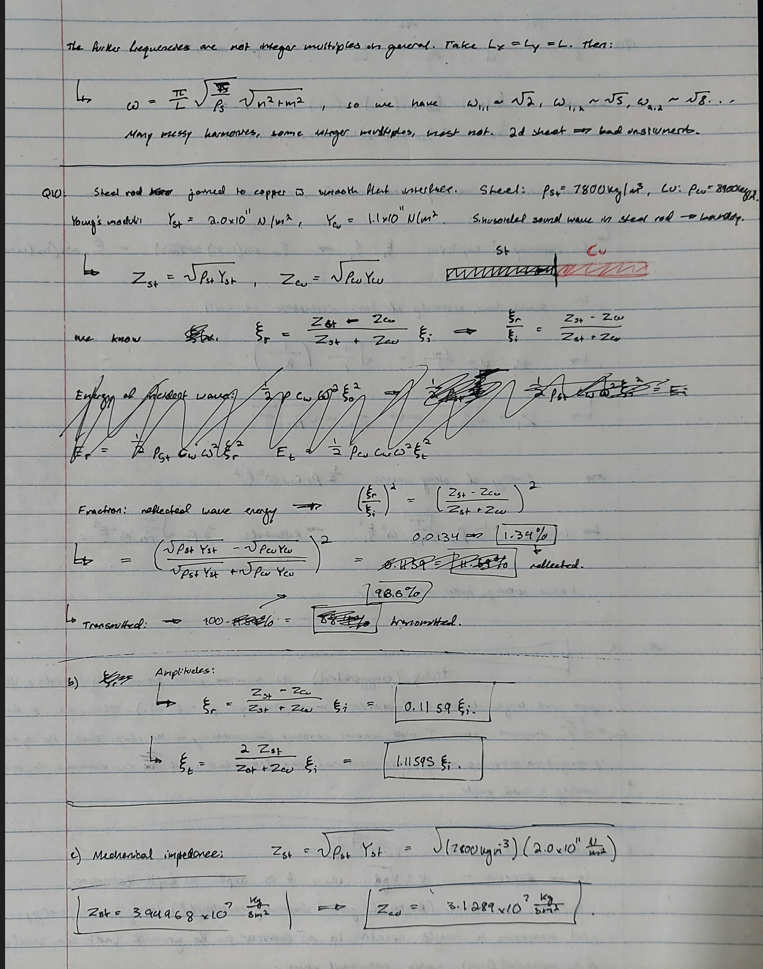 The further frequencies are not integer multiples in general. Take Lx = Ly = L. Then:
ω = π/L √(/ρs) √(n²+m²) , so we have ω1,1 ~ √2, ω1,2 ~ √5, ω2,2 ~ √8...
Many messy harmonics, some integer multiples, most not. 2d sheet ⇒ bad instruments.
Q10: Steel rod joined to copper @ smooth flat interface. Steel: ρst = 7800 kg/m³, Cu: ρcu = 8900 kg/m³.
Young's moduli: Yst = 2.0x10¹¹ N/m², Ycu = 1.1x10¹¹ N/m². Sinusoidal sound wave in steel rod → boundary.
St Cu
Zst = √ρst Yst , Zcu = √ρcu Ycu
we know ξr = (Zst - Zcu)/(Zst + Zcu) ξi ⇒ ξr/ξi = (Zst - Zcu)/(Zst + Zcu)
Energy of incident wave: ½ ρ cω ω² ξ0² → ½ ρst ω² ξi² = Ei
Er = ½ ρst cω ω² ξr² Et = ½ ρcu cω ω² ξt²
Fraction: reflected wave energy → (ξr/ξi)² = ((Zst - Zcu)/(Zst + Zcu))²
= ((√ρst Yst - √ρcu Ycu)/(√ρst Yst + √ρcu Ycu))² = 0.0134 ⇒ 1.34% reflected.
98.6%
Transmitted: → 100 - = transmitted.
b) Amplitudes:
ξr = (Zst - Zcu)/(Zst + Zcu) ξi = 0.1159 ξi.
ξt = 2 Zst/(Zst + Zcu) ξi = 1.11595 ξi.
c) Mechanical impedance: Zst = √ρst Yst = √(7800 kg m⁻³)(2.0x10¹¹ N/m²)
Zst = 3.94968 x10⁷ kg/sm² ⇒ Zcu = 3.1289 x10⁷ kg/sm² .